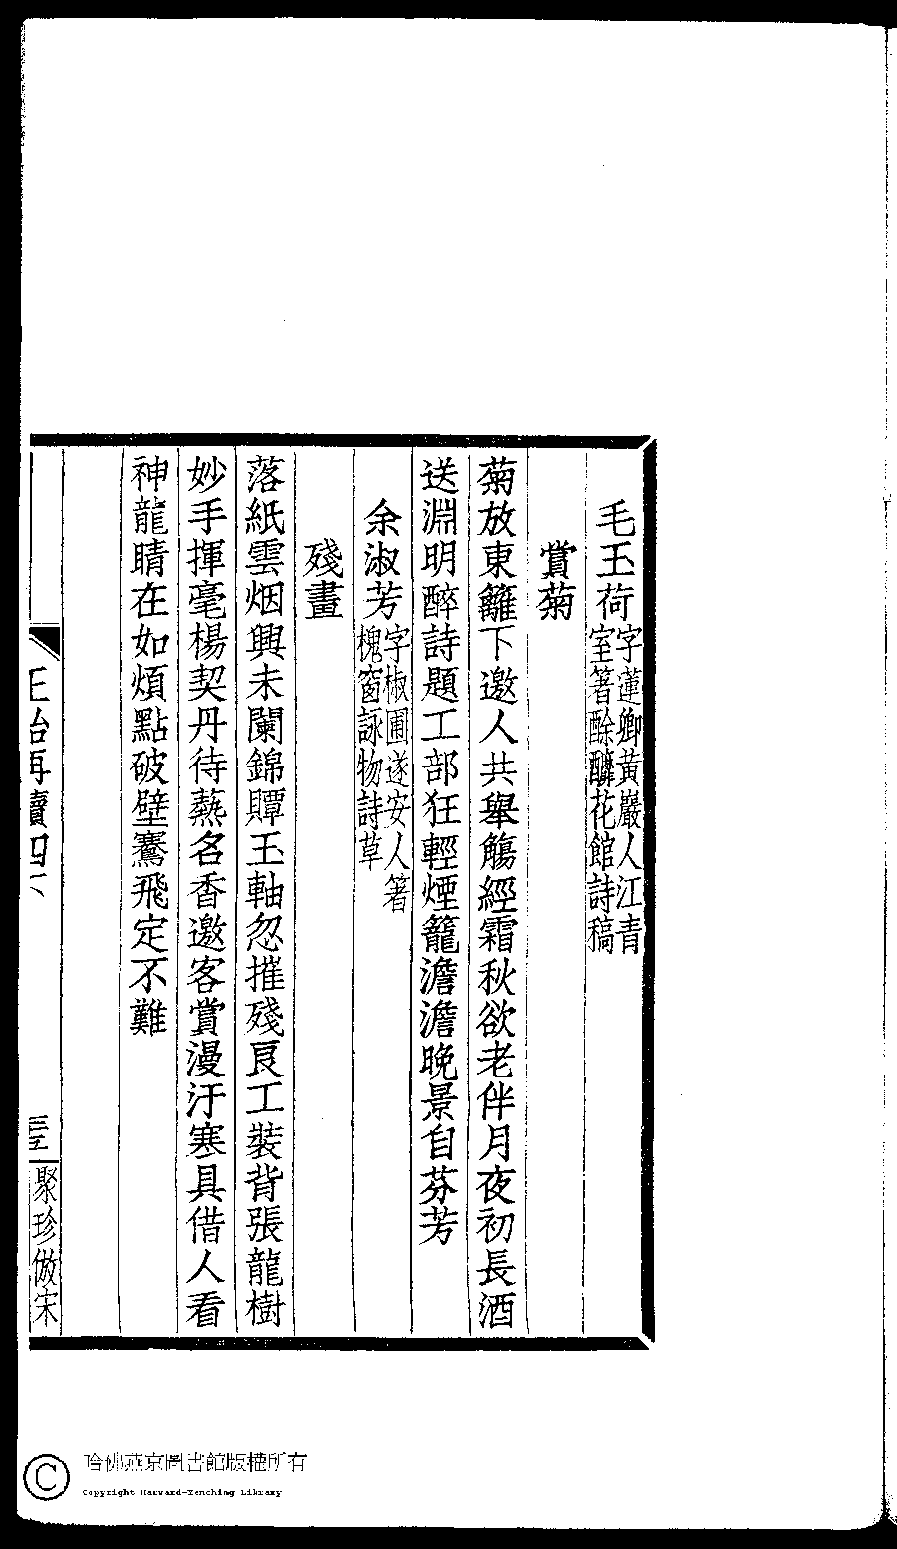 毛玉荷字蓮卿黃巖人江青
室箸酴醾花館詩稿
賞菊
菊放東籬下邀人共舉觴經霜秋欲老伴月夜初長酒
送淵明醉詩題工部狂輕煙籠澹澹晚景自芬芳
余淑芳字椒圃遂安人箸
槐窗詠物詩草
殘畫
落紙雲烟興未闌錦贉玉軸忽摧殘良工裝背張龍樹
妙手揮毫楊契丹待爇名香邀客賞漫汙寒具借人看
神龍睛在如煩點破壁騫飛定不難
正始再續四下
三
聚珍倣宋
哈佛燕京圖書館版權所有
Copyright Harvard-Yenching Library